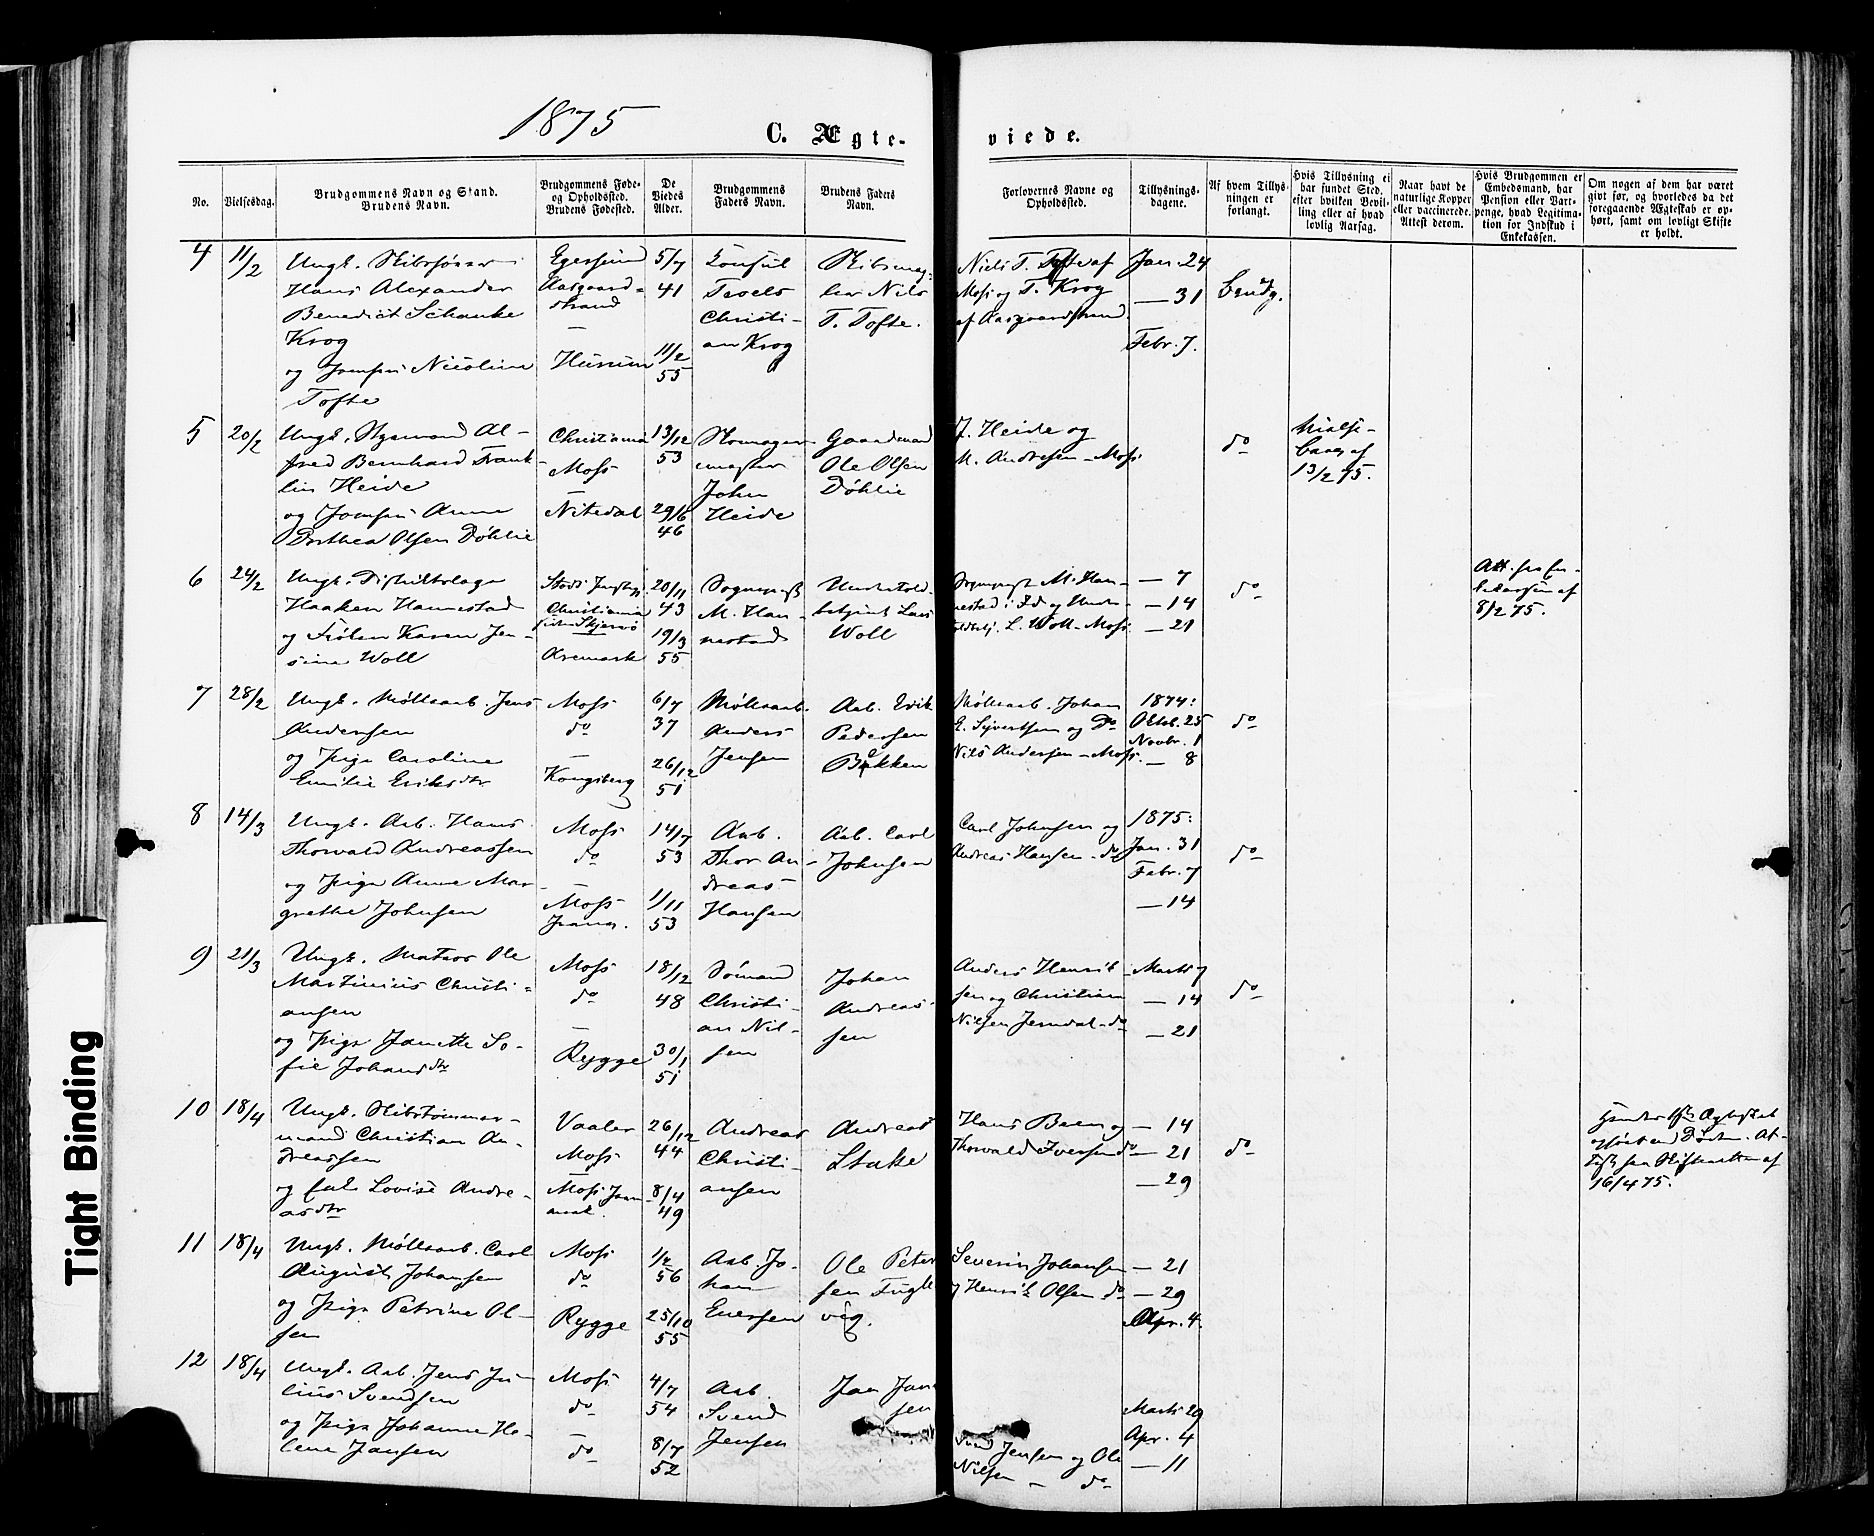 1875
C. Ægte-
viede.
No.
Vielsesdag.
Brudgommens Navn og Stand.
Brudens Navn.
Brudgommens Føde-
og Opholdssted.
Brudens Fødested.
De
Viedes
Alder.
Brudgommens
Faders Navn.
Brudens Faders
Navn.
Forlovernes Navne og
Opholdssted.
Tillysnings-
dagene.
Af hvem Tillys-
ningen er
forlangt.
Hvis Tillysning ei
har fundet Sted,
efter hvilken Bevil-
ling eller af hvad
lovlig Aarsag.
Naar havt de
naturlige Kopper
eller vaccinerede.
Attest derom.
Hvis Brudgommen er
Embedsmand, har
Pension eller Vart-
penge, hvad Legitima-
tion for Indskud i
Enkekassen.
Om nogen af dem har været
givt før, og hvorledes da det
foregaaende Ægteskab er op-
hørt, samt om lovligt Skifte
er holdt.
4
11/2
Ungk. Skibsfører
Hans Alexander
Benedict Schanke
Krog
og Jomfru Nicoline
Tofte
Egersund
Aasgaard-
strand
—
Husum
5/7
41
11/2
55
Consul
Troels
Christi-
an Krog
Skibsmæg-
ler Nils
T. Tofte.
Niels T. Tofte af
Moss og T. Krog
af Aasgaardstrand.
Jan. 24
— 31
Febr. 7.
Brudg.
5
20/2
Ungk. Styrmand Al-
fred Bernhard Frank-
lin Heide
og Jomfru Anne
Dorthea Olsen Døhlie
Christiania
Moss
—
Nitedal
13/12
53
29/6
46
Skomager-
mester
John
Heide
Gaardmand
Ole Olsen
Døhlie
J. Heide og
M. Andresen - Moss
do
13/2 75.
6
24/2
Ungk. Distriktslæge
Haaken Hannestad
og Frøken Karen Jen-
sine Woll
Christiania
Skjervø
Aremark
20/11
43
19/3
55
Sognepræst
M. Han-
nestad
Undertold-
betjent Lars
Woll
Sognepræst M. Han-
nestad i Id og Under-
toldbetj. L. Woll - Moss.
— 7
— 14
— 21
do
Att. fra En-
kekassen af
8/2 75.
7
28/2
Ungk. Møllearb. Jens
Andersen
og Pige Caroline
Emilie Eriksdtr
Moss
do
—
Kongsberg
6/7
37
26/12
51
Møllearb.
Anders
Jensen
Arb. Erik
Pedersen
Bakken
Møllearb. Johan
E. Syvertsen og Do
Nils Andersen - Moss.
1874:
Oktob. 25
Novbr. 1
— 8
do
8
14/3
Ungk. Arb. Hans
Thorvald Andreassen
og Pige Anne Mar-
grethe Johnsen
Moss
do
—
Moss
14/7
53
1/11
53
Arb.
Thor An-
dreas
Hansen
Arb. Carl
Johnsen
Carl Johnsen og
Andreas Hansen - do
1875:
Jan. 31
Febr. 7
— 14
do
9
21/3
Ungk. Matros Ole
Martinius Christi-
ansen
og Pige Janette So-
fie Johansdtr
Moss
do
—
Rygge
18/12
48
30/1
51
Sømand
Christi-
an Nil-
sen
Johan
Andreas-
sen
Anders Henrik-
sen og Christian
Nilsen Jerndal - do
Marts 7
— 14
— 21
do
10
18/4
Ungk. Skibstømmer-
mand Christian An-
dreassen
og Lovise Andre-
asdtr
Vaaler
Moss
—
Moss
26/12
44
8/4
49
Andreas
Christi-
ansen
Andreas
Stake
Hans Been og
Thorvald Iversen do
— 14
— 21
— 29
do
Hendes 1ste Ægteskab
ophørt ved Døden. At-
test fra Skifteretten af
16/4 75.
11
18/4
Ungk. Møllearb. Carl
August Johansen
og Pige Petrine Ol-
sen
Moss
do
Rygge
1/2
56
25/10
55
Arb. Jo-
han
Enersen
Ole Peter
sen Fugle
vig.
Severin Johansen
og Henrik Olsen do
— 21
— 29
Apr. 4.
12
18/4
Ungk. Arb. Jens Ju-
lius Svendsen
og Pige Johanne He-
lene Jansen
Moss
do
—
do
4/7
54
8/7
52
Arb.
Svend
Jensen
Jan Jan
sen
Svend Jensen og Ole
Nilsen - do
Marts 29
Apr. 4
— 11
Tight Binding